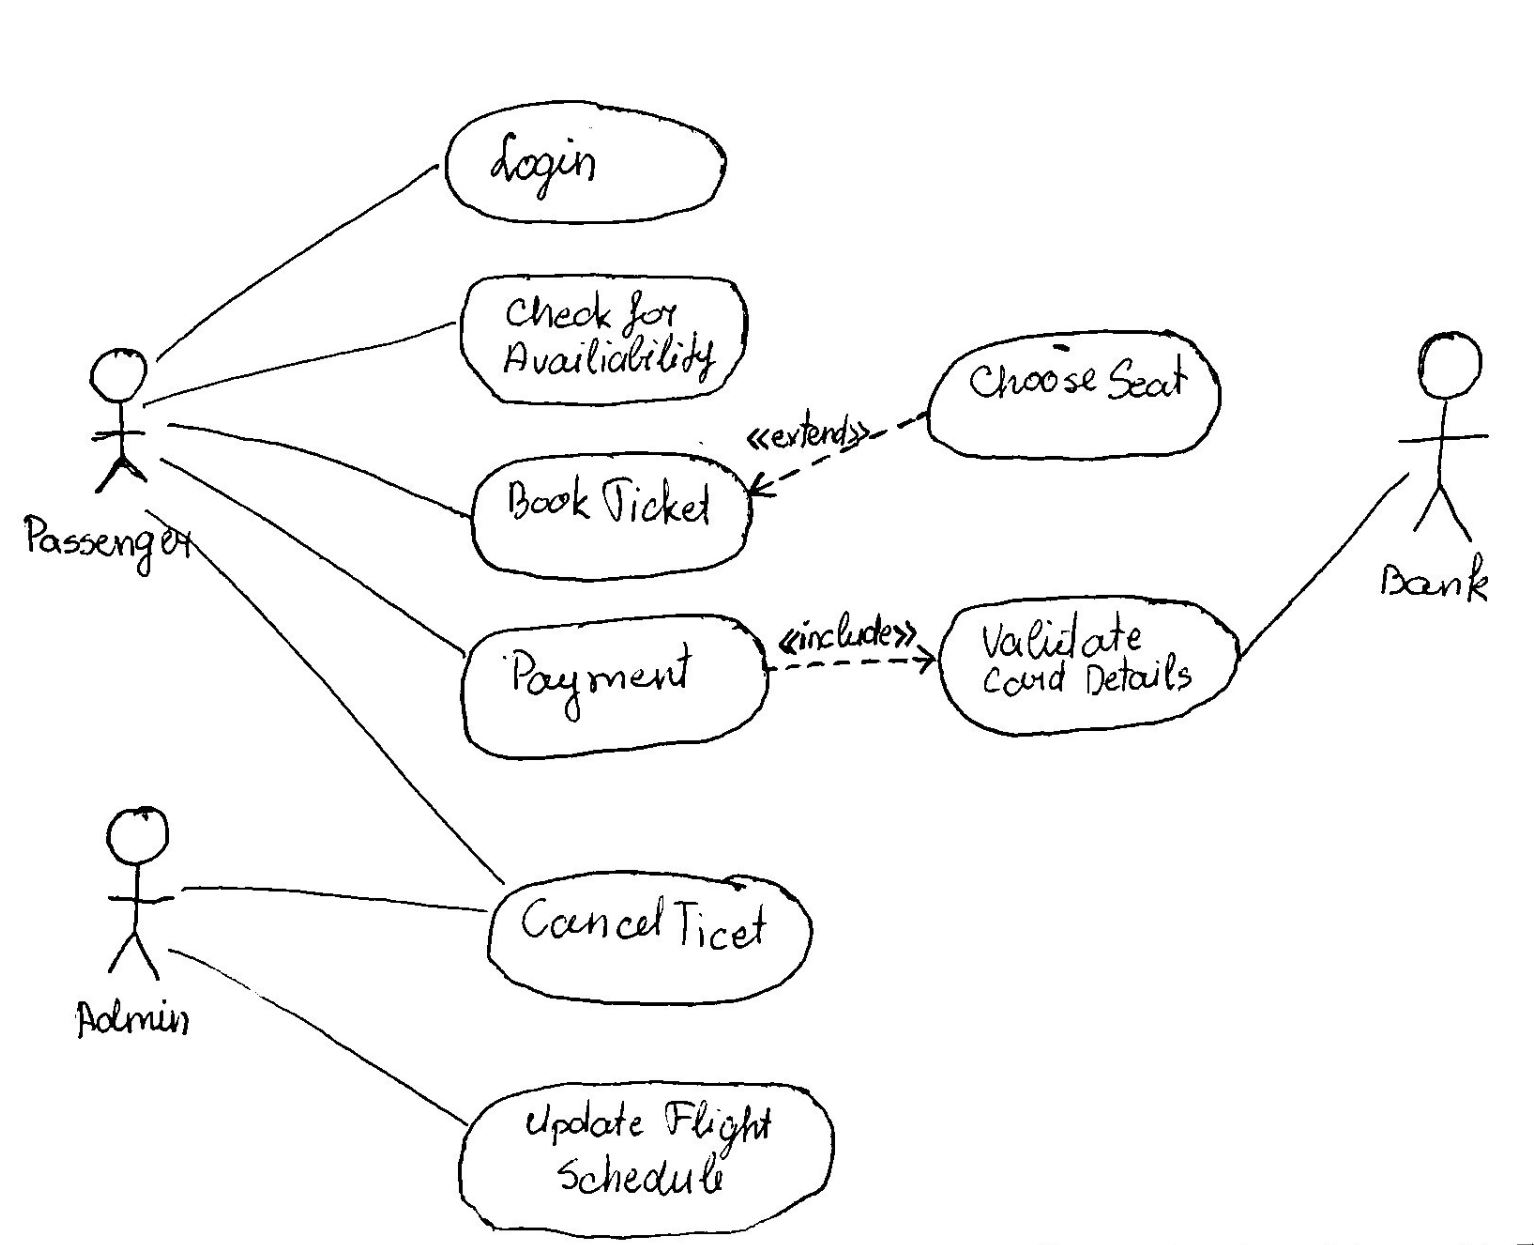 Login
Check for
Availiability
Choose Seat
«extend»
Book Ticket
Passenger
Bank
«include»
Validate
Card Details
Payment
Cancel Ticet
Admin
Update Flight
Schedule